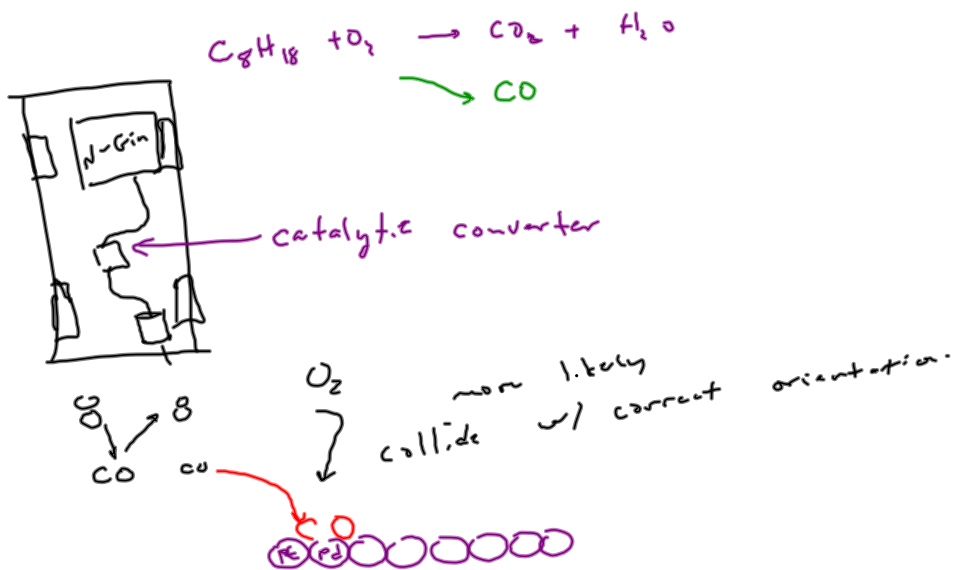 C₈H₁₈ + O₂ → CO₂ + H₂O
CO
N-Gin
catalytic converter
O₂
more likely
collide w/ correct orientation.
CO
co
CO
Pt Pd